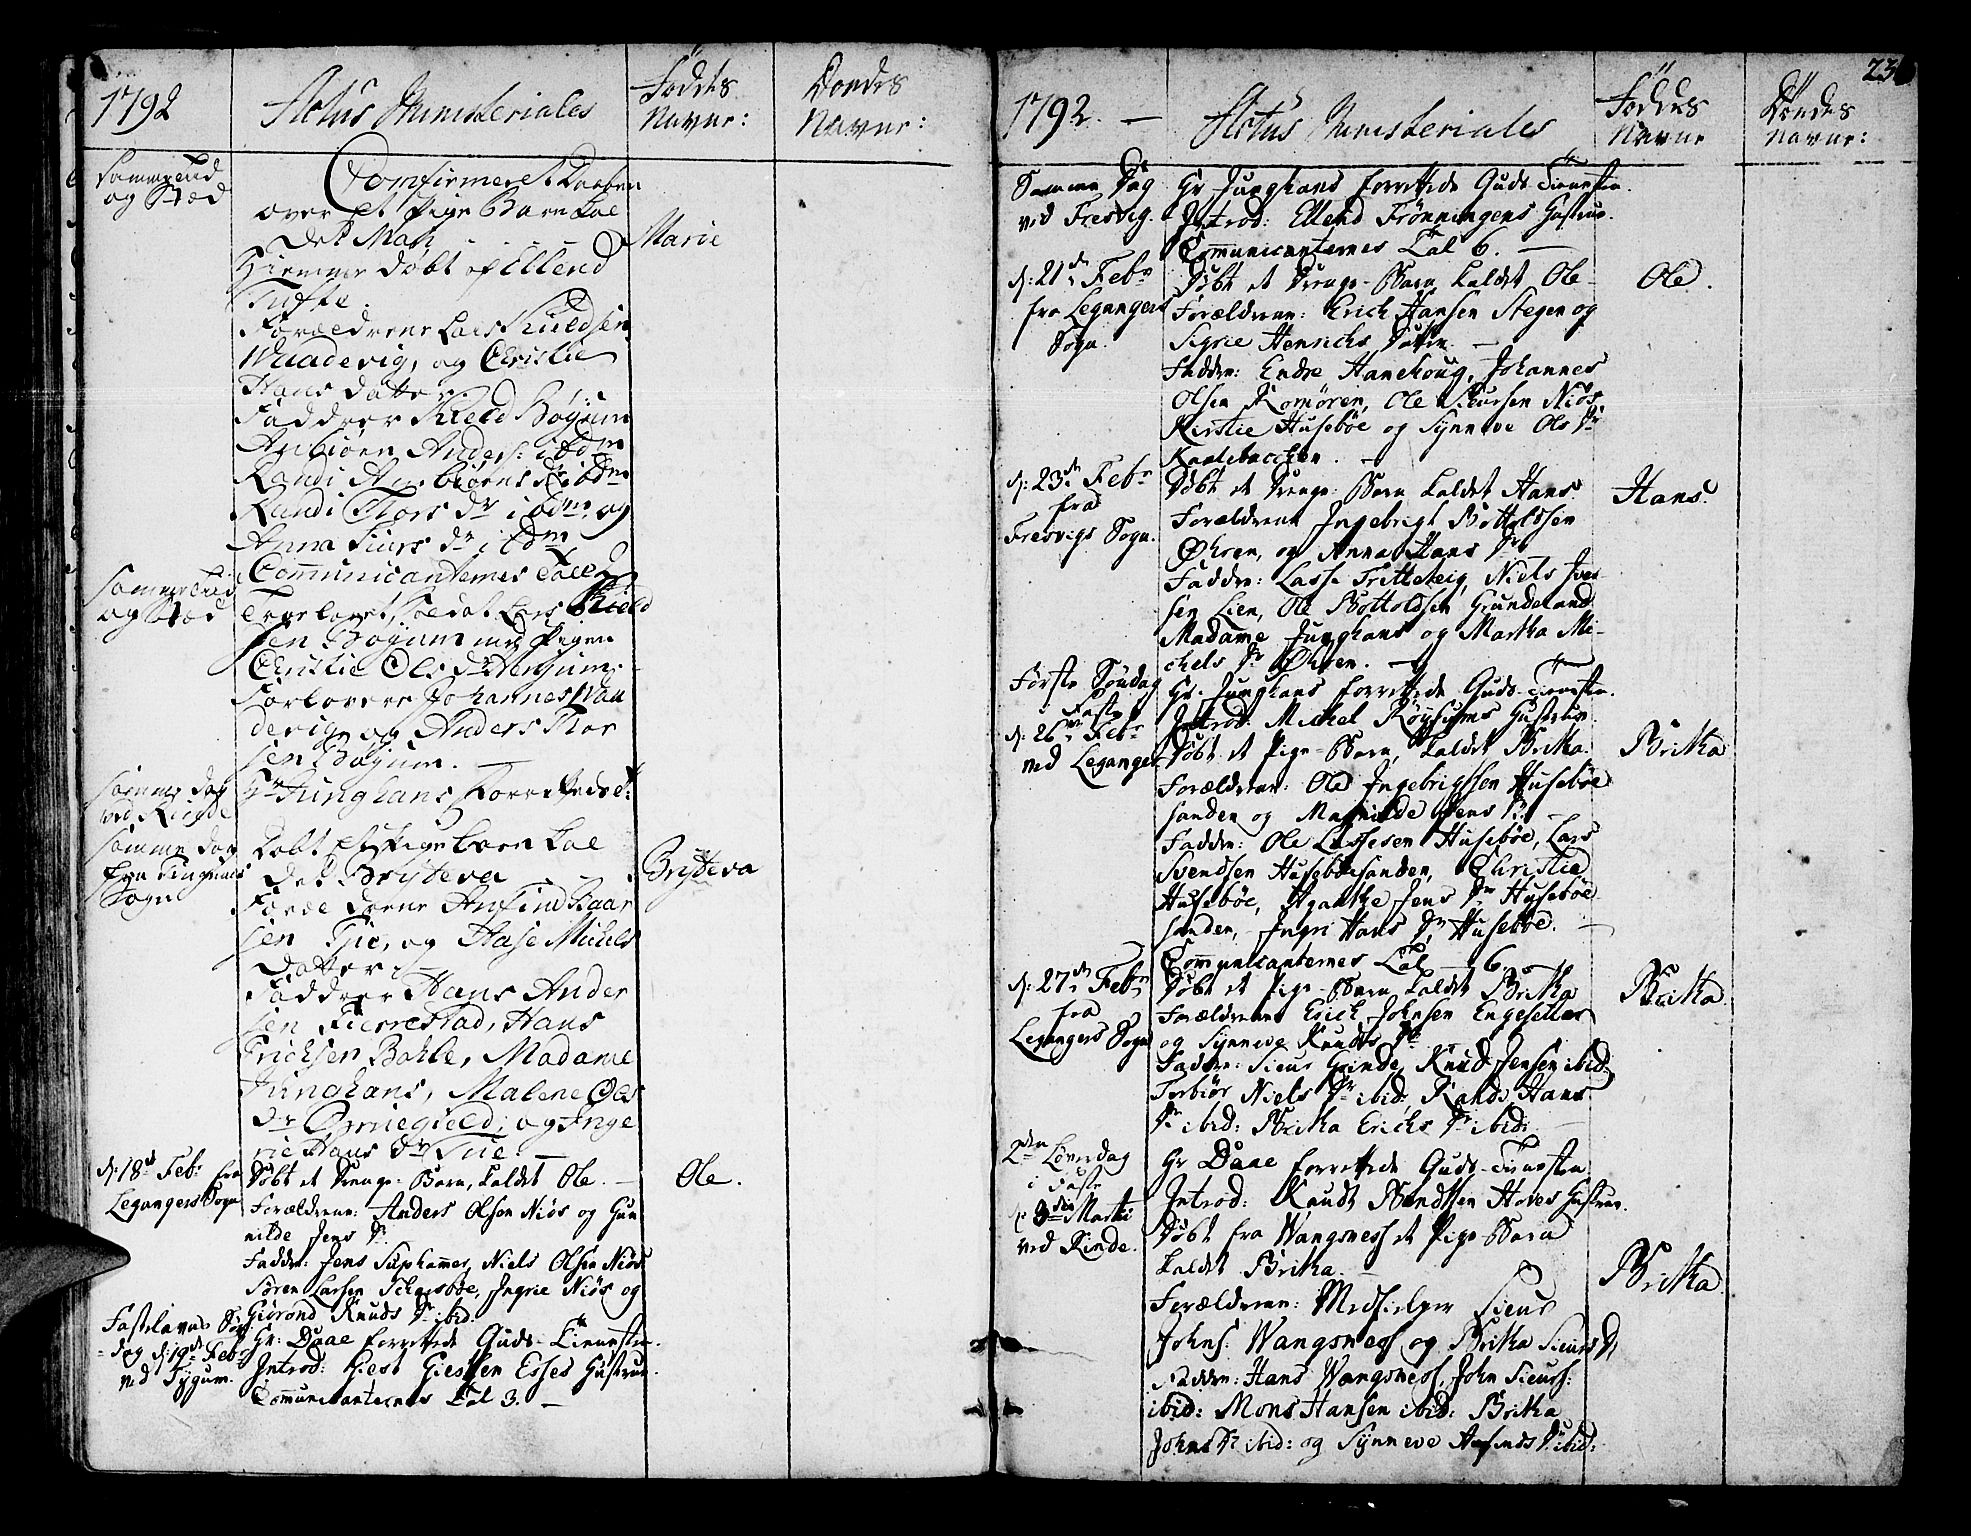 1792
Actus Ministeriales
Föddes
Navne:
Dοedes
Navne:
Samme tid
og Stæd
Comfirmeret Daaben
over et Pige Barn kal
det Mari
Marie
Hiemme døbt af Ellend
Tufte.
Forældrene Lars Kieldsen
Waadevig, og Christie
Hans datter.
Faddrer Kield Bøyum
Anbiörn Anders: ibdm
Randi Anbiørns dr ibdm
Randi Thors dr ibdm, og
Anna Siurs dr ibdm
Communicanternes Tall
Samme tid
og Stæd
Trolovet, Soldat Lars Kield
sen Bøyum med Pigen
Christie Ols dr Henjum.
Forlovere Johannes Waa
devig, og Anders Thor
sen Bøyum.
Samme dag
ved Rinde
Hr Junghans Forrettede
Samme dag
fra Tiugums
Sogn
Døbt et Pige barn kal
det Brytteva
Brytteva
Foræ ldrene Anfind Baar
sen Tie, og Aase Michels
datter.
Faddrer Hans Ander
sen Fierrestad, Hans
Erichsen Bahle, Madame
Junghans, Malene Ols
dr Ormegield, og Inge
rie Hans dr Tue.
d: 18d Feb: fra
Legangers Sogn
Døbt et Drenge-Barn, kaldet Ole.
Ole.
Forældrene: Anders Olsen Niøs og Gun
nilde Jens Dr
Faddre: Jens Suphammer, Niels Olsen Niøs
Sören Larsen, Ingrie Niøs og
Giörond Knuds Dr ibid.
Fastelavns Søn
dag d: 19de Feb:
ved Tygum.
Hr: Daae forrettede Guds-Tienesten.
Introd: Giest Giestsen Esses Hustrue.
Communicanternes Tal 3.
23
1792.
Actus Ministeriales
Föddes
Navne
Döedes
Navne:
Samme Dag
ved Fresvig.
Hr Junghans forrettede Guds Tienesten.
Introd: Ellend Frönningens Hustrue.
Communicanternes Tal 6.
d: 21de Feb:
fra Legangers
Sogn.
Døbt et Drenge-Barn kaldet Ole
Ole.
Forældrene: Erich Hansen Stegen og
Sigrie Henrichs Datter.
Faddre: Endre Hanehoug, Johannes
Olsen Romören, Ole Siursen Niøs
Kirstie Husebøe og Synneve Ols Dr
Kaalebacken.
d: 23de Feb:
fra
Fresvigs Sogn.
Døbt et Drenge-Barn kaldet Hans
Hans.
Forældrene Ingebrigt Bottoldsen
Øhren, og Anna Hans Dr
Faddre: Lasse Tritteteig, Niels Iver
sen Lien, Ole Bottoldsen Grundeland
Madame Junghans og Martha Mi-
chels Dr Øhren.
Første Søndag
i Faste
d: 26de Feb:
ved Leganger
Hr. Junghans forrettede Guds-Tienesten.
Introd. Michel Röysums Hustrue.
Døbt et Pige-Barn, kaldet Britha.
Britha
Forældrene: Ole Ingebrigtsen Husebøe
sanden og Mathilde Jens Dr.
Faddre: Ole Lassesen Husebøe, Lars
Svendsen Husebøesanden, Christie
Husebøe, Aganthe Jens Dr Husebøe
sanden, Ingri Hans Dr Husebøe.
Communicanternes Tal 6.
d: 27de Feb:
fra
Legangers Sogn
Døbt et Pige-Barn kaldet Britha
Britha
Forældrene Erich Johnsen Engesetter
og Synneve Knuds Dr
Faddre: Siur Grinde, Knud Jensen ibid:
Torbiør Niels Dr ibid, Randi Hans
Dr ibid: Britha Erichs Dr ibid:
2den Løverdag
i Faste
d: 3die Martii
ved Rinde.
Hr Daae forrettede Guds-Tienesten
Introd: Knudt Bendtsen Hoves Hustrue.
Døbt fra Wangsness et Pige Barn
kaldet Britha.
Britha
Forældrene: Medhielper Siur
Johns: Wangsness og Britha Siurs Dr
Faddre: Hans Wangsness, John Siurs:
ibid: Mons Hansen ibid: Britha
Johns Dr ibid: og Synneve Anfinds Dr ibid: